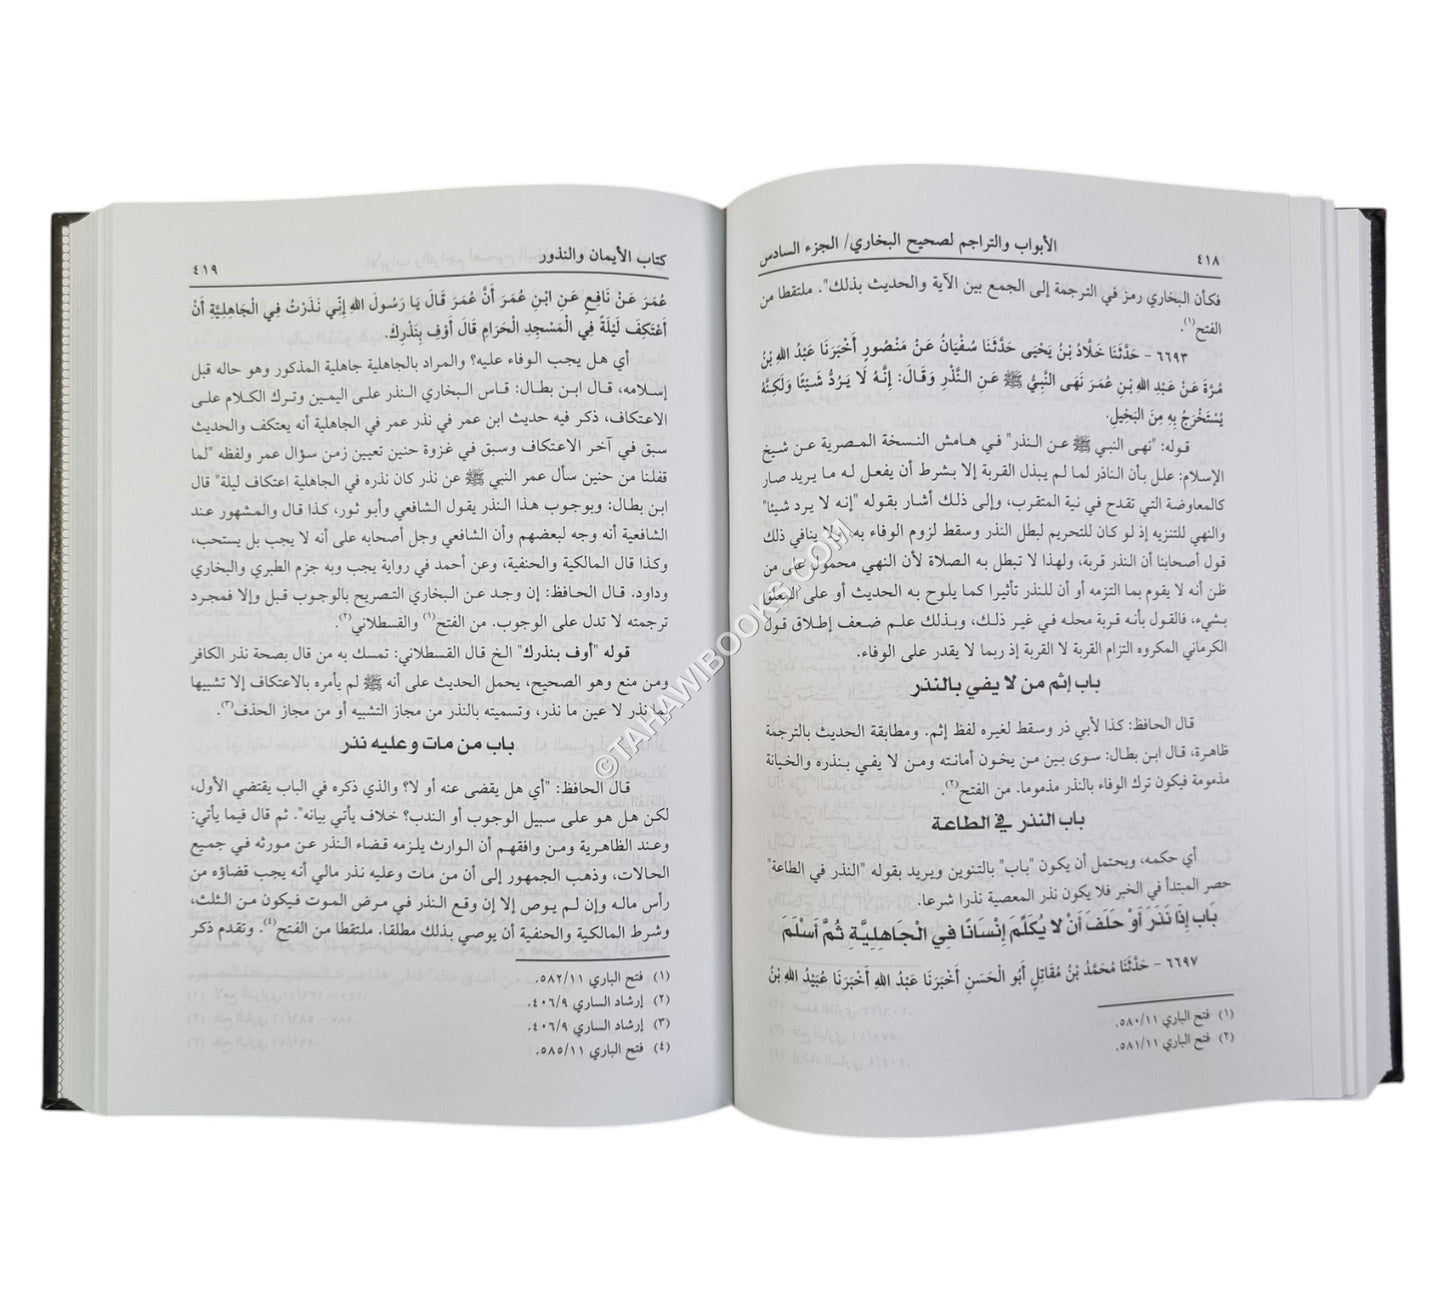 ٤١٨ الأبواب والتراجم لصحيح البخاري/ الجزء السادس
فكأن البخاري رمز في الترجمة إلى الجمع بين الآية والحديث بذلك". ملتقطا من
الفتح(١).
٦٦٩٣ - حَدَّثَنَا خَلَّادُ بْنُ يَحْيَى حَدَّثَنَا سُفْيَانُ عَنْ مَنْصُورٍ أَخْبَرَنَا عَبْدُ اللهِ بْنُ
مُرَّةَ عَنْ عَبْدِ اللهِ بْنِ عُمَرَ نَهَى النَّبِيُّ ﷺ عَنِ النَّذْرِ وَقَالَ: إِنَّهُ لَا يَرُدُّ شَيْئًا وَلَكِنَّهُ
يُسْتَخْرَجُ بِهِ مِنَ البَخِيلِ.
قوله: "نهى النبي ﷺ عن النذر" في هامش النسخة المصرية عن شيخ
الإسلام: علل بأن الناذر لما لم يبذل القربة إلا بشرط أن يفعل له ما يريد صار
كالمعاوضة التي تقدح في نية المتقرب، وإلى ذلك أشار بقوله "إنه لا يرد شيئا"
والنهي للتنزيه إذ لو كان للتحريم لبطل النذر وسقط لزوم الوفاء به، ولا ينافي ذلك
قول أصحابنا أن النذر قربة، ولهذا لا تبطل به الصلاة لأن النهي محمول على من
ظن أنه لا يقوم بما التزمه أو أن للنذر تأثيرا كما يلوح به الحديث أو على المعلق
بشيء، فالقول بأنه قربة محله في غير ذلك، وبذلك علم ضعف إطلاق قول
الكرماني المكروه التزام القربة لا القربة إذ ربما لا يقدر على الوفاء.
باب إثم من لا يفي بالنذر
قال الحافظ: كذا لأبي ذر وسقط لغيره لفظ إثم. ومطابقة الحديث بالترجمة
ظاهرة، قال ابن بطال: سوى بين من يخون أمانته ومن لا يفي بنذره والخيانة
مذمومة فيكون ترك الوفاء بالنذر مذموما. من الفتح(٢).
باب النذر في الطاعة
أي حكمه، ويحتمل أن يكون "باب" بالتنوين ويريد بقوله "النذر في الطاعة"
حصر المبتدأ في الخبر فلا يكون نذر المعصية نذرا شرعا.
بَاب إِذَا نَذَرَ أَوْ حَلَفَ أَنْ لَا يُكَلِّمَ إِنْسَانًا فِي الْجَاهِلِيَّةِ ثُمَّ أَسْلَمَ
٦٦٩٧ - حَدَّثَنَا مُحَمَّدُ بْنُ مُقَاتِلٍ أَبُو الْحَسَنِ أَخْبَرَنَا عَبْدُ اللهِ أَخْبَرَنَا عُبَيْدُ اللهِ بْنُ
(١) فتح الباري ٥٨٠/١١.
(٢) فتح الباري ٥٨١/١١.
كتاب الأيمان والنذور ٤١٩
عُمَرَ عَنْ نَافِعٍ عَنِ ابْنِ عُمَرَ أَنَّ عُمَرَ قَالَ يَا رَسُولَ اللهِ إِنِّي نَذَرْتُ فِي الْجَاهِلِيَّةِ أَنْ
أَعْتَكِفَ لَيْلَةً فِي الْمَسْجِدِ الْحَرَامِ قَالَ أَوْفِ بِنَذْرِكَ.
أي هل يجب الوفاء عليه؟ والمراد بالجاهلية جاهلية المذكور وهو حاله قبل
إسلامه، قال ابن بطال: قاس البخاري النذر على اليمين وترك الكلام على
الاعتكاف، ذكر فيه حديث ابن عمر في نذر عمر في الجاهلية أنه يعتكف والحديث
سبق في آخر الاعتكاف وسبق في غزوة حنين تعيين زمن سؤال عمر ولفظه "لما
قفلنا من حنين سأل عمر النبي ﷺ عن نذر كان نذره في الجاهلية اعتكاف ليلة" قال
ابن بطال: وبوجوب هذا النذر يقول الشافعي وأبو ثور، كذا قال والمشهور عند
الشافعية أنه وجه لبعضهم وأن الشافعي وجل أصحابه على أنه لا يجب بل يستحب،
وكذا قال المالكية والحنفية، وعن أحمد في رواية يجب وبه جزم الطبري والبخاري
وداود. قال الحافظ: إن وجد عن البخاري التصريح بالوجوب قبل وإلا فمجرد
ترجمته لا تدل على الوجوب. من الفتح(١) والقسطلاني(٢).
قوله "أوف بنذرك" الخ قال القسطلاني: تمسك به من قال بصحة نذر الكافر
ومن منع وهو الصحيح، يحمل الحديث على أنه ﷺ لم يأمره بالاعتكاف إلا تشبيها
بما نذر لا عين ما نذر، وتسميته بالنذر من مجاز التشبيه أو من مجاز الحذف(٣).
باب من مات وعليه نذر
قال الحافظ: "أي هل يقضى عنه أو لا؟ والذي ذكره في الباب يقتضي الأول،
لكن هل هو على سبيل الوجوب أو الندب؟ خلاف يأتي بيانه". ثم قال فيما يأتي:
وعند الظاهرية ومن وافقهم أن الوارث يلزمه قضاء النذر عن مورثه في جميع
الحالات، وذهب الجمهور إلى أن من مات وعليه نذر مالي أنه يجب قضاؤه من
رأس ماله وإن لم يوص إلا إن وقع النذر في مرض الموت فيكون من الثلث،
وشرط المالكية والحنفية أن يوصي بذلك مطلقا. ملتقطا من الفتح(٤). وتقدم ذكر
(١) فتح الباري ٥٨٢/١١.
(٢) إرشاد الساري ٤٠٦/٩.
(٣) إرشاد الساري ٤٠٦/٩.
(٤) فتح الباري ٥٨٥/١١.
©TAHAWIBOOKS.COM